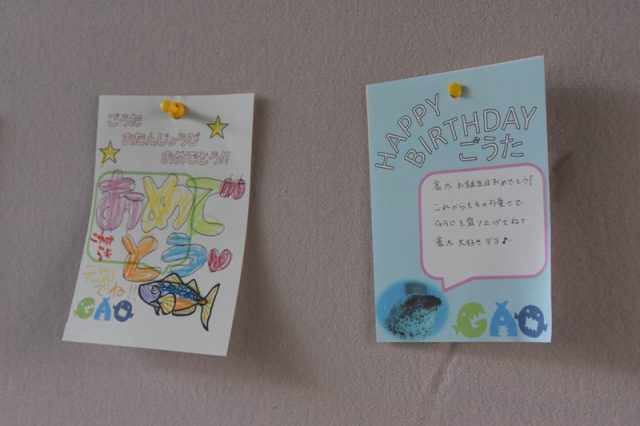 ごうた
おたんじょうび
おめでとう!!
おめで
とう
GAO
HAPPY
BIRTHDAY
ごうた
豪太 お誕生日おめでとう!
これからもその可愛さで
GAOを盛り上げてね。
豪太 大好きダヨ♪
GAO